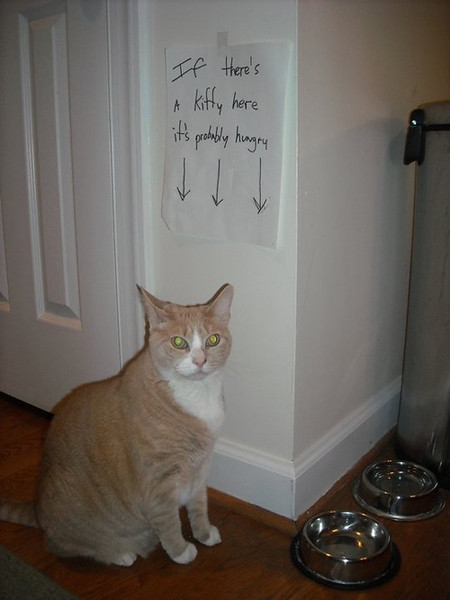 If there's
A kitty here
it's probably hungry